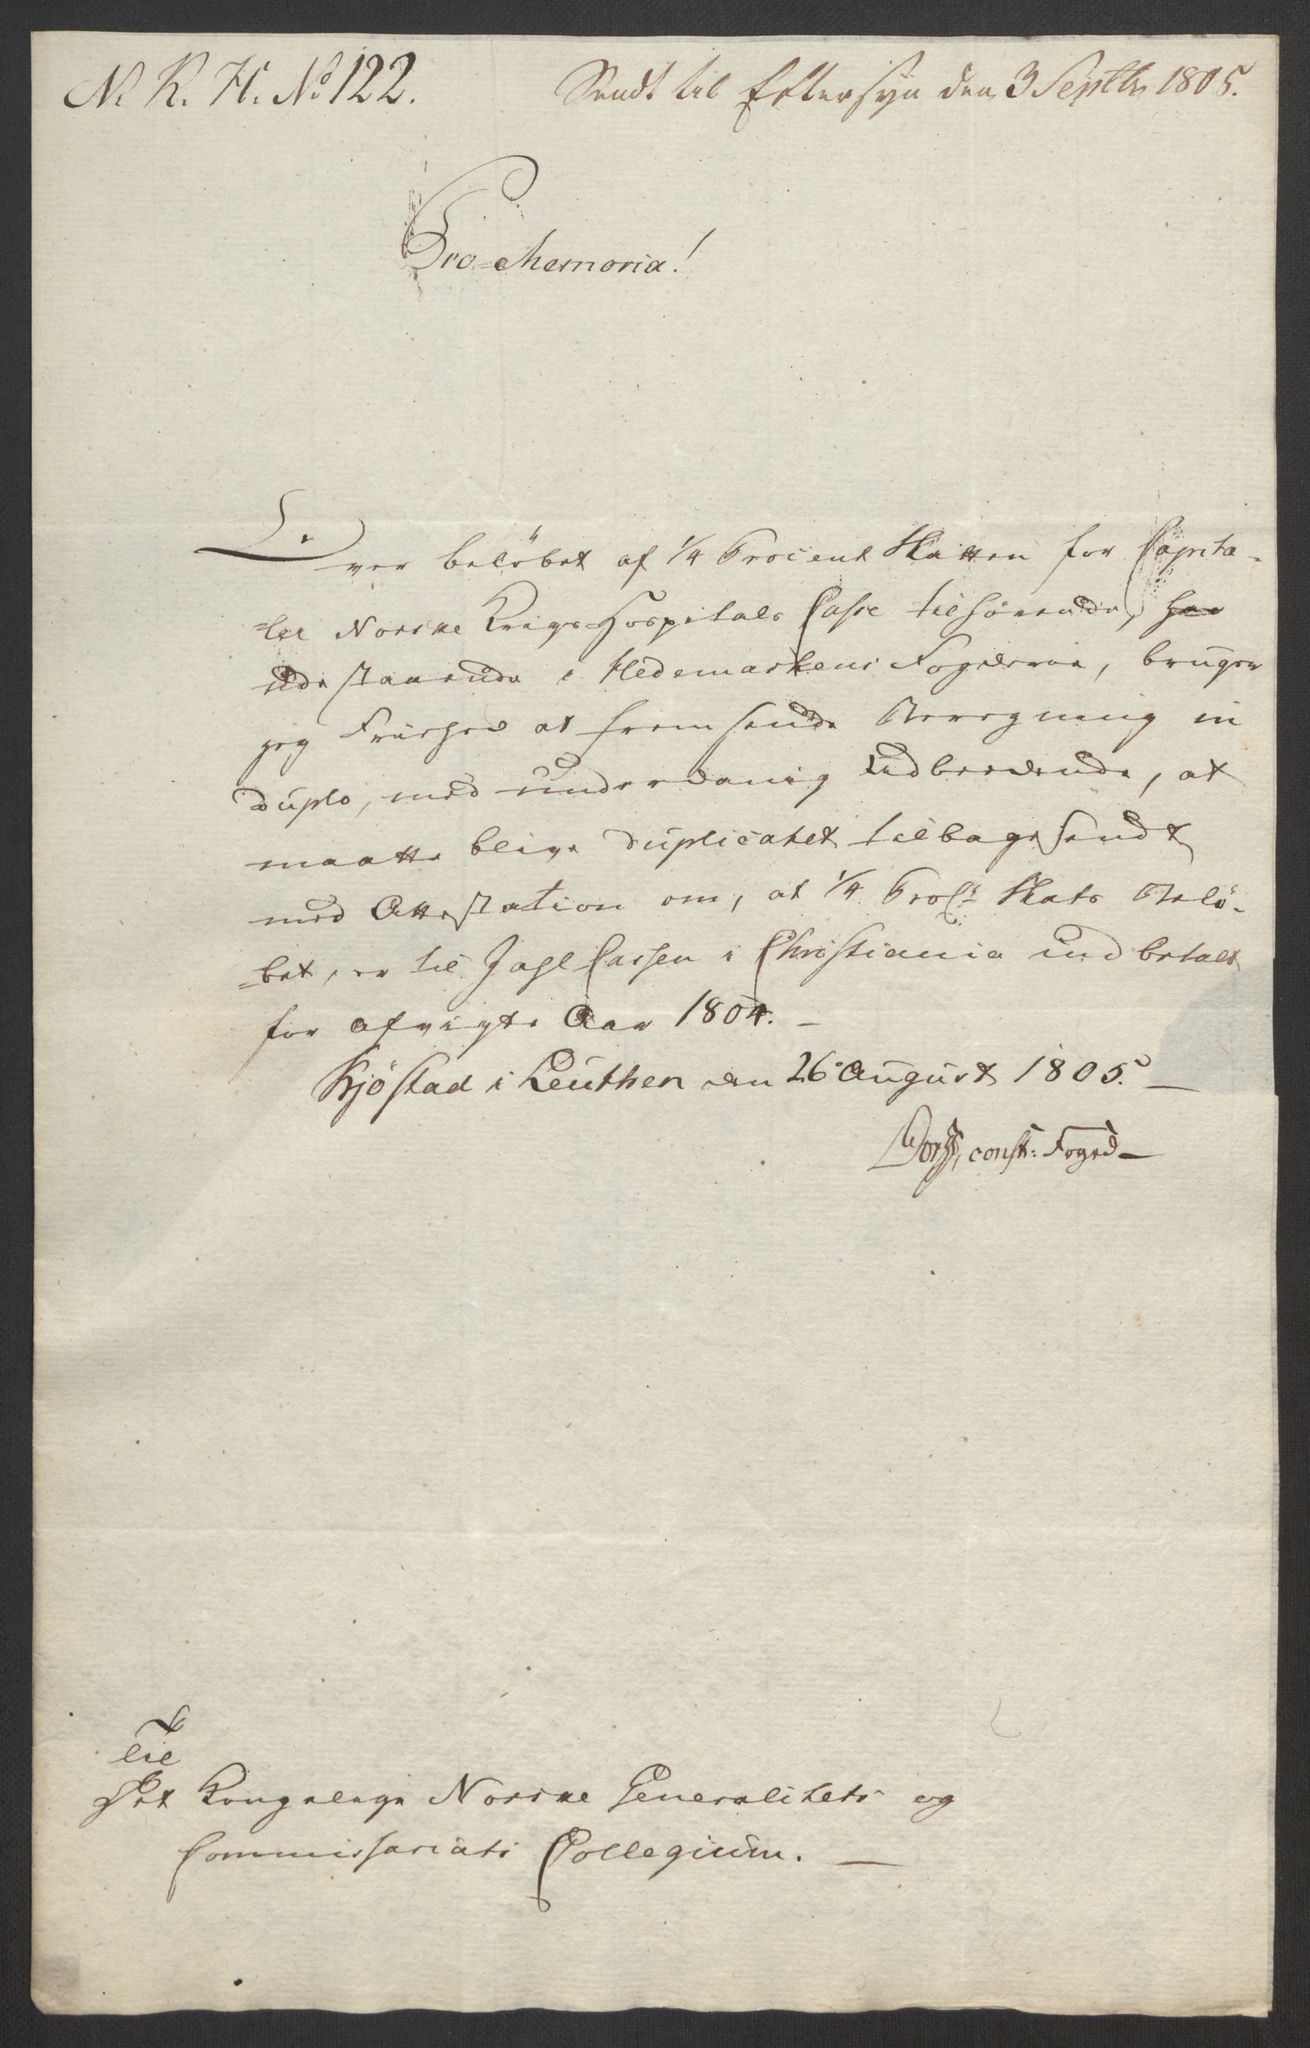 N. K. H. No 122.
Sendt til Eftersyn den 3 Septbr 1805.
Pro-Memoria!
Over beløbet af 1/4 Procent Skatten for Capita-
-ler Norske Krigs-Hospitals Casse tilhørende,
udestaaende i Hedemarkens Fogderie, bruger
jeg Friehed at fremsende Beregning in
duplo, med underdanig Udbedende, at
maatte blive duplicatet tilbagesendt
med Attestation om, at 1/4 ProCt Skats Belö-
-bet, er til Zahl Cassen i Christiania indbetalt
for afvigte Aar 1804. –
Kjöstad i Leuthen den 26 August 1805. –
const: Foged –
Til
Det Kongelige Norske Generalitets og
Commissariats Collegium. –